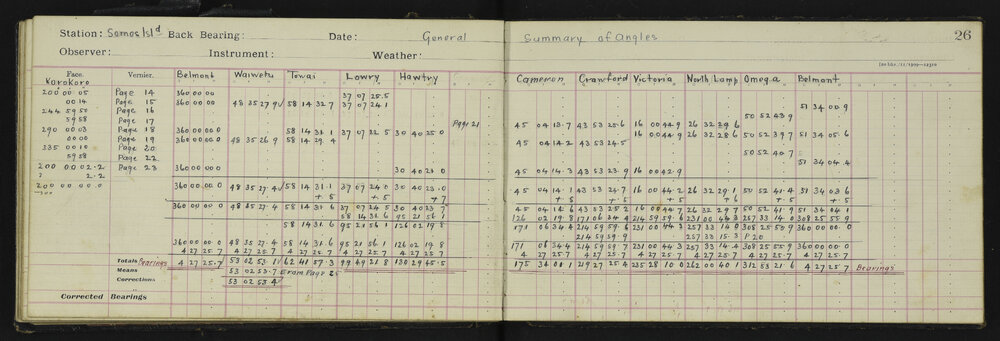 Station: Somes Isl<sup>d</sup> Back Bearing: Date: General Summary of Angles 26
Observer: Instrument: Weather:
Face. Vernier. Belmont Waiwetu Towai Lowry Hawtry Cameron Crawford Victoria North Lamp Omega Belmont
Korokoro
37 07 25.5
200 00 05 Page 14 360 00 00 48 35 27.9 58 14 32.7 37 07 24.1 51 34 00.9
00 14 Page 15
244 59 50 Page 16 50 52 43.9
59 58 Page 17 Page 21
290 00 03 Page 18 360 00 00.0 58 14 31.1 37 07 22.5 30 40 25.0 45 04 13.7 43 53 25.6 16 00 44.9 26 32 29.6
00 00 Page 19 360 00 00.0 48 35 26.9 58 14 29.4 16 00 44.9 26 32 28.6 50 52 39.7 51 34 05.6
335 00 10 Page 20 45 04 14.2 43 53 24.5
59 58 Page 22 50 52 40.7
200 00 02.2 Page 23 360 00 00 30 40 23.0 51 34 04.4
2.2 45 04 14.3 43 53 23.9 16 00 42.9
200 00 00.0 360 00 00.0 48 35 27.4 58 14 31.1 37 07 24.0 30 40 23.0 45 04 14.1 43 53 24.7 16 00 44.2 26 32 29.1 50 52 41.4 51 34 03.6
+.5 +.5 +.7 +.5 +.5 +.5 +.6 +.5 +.5
360 00 00.0 48 35 27.4 58 14 31.6 37 07 24.5 30 40 23.7 45 04 14.6 43 53 25.2 16 00 44.7 26 32 29.7 50 52 41.9 51 34 04.1
58 14 31.6 95 21 56.1 126 02 19.8 171 06 34.4 214 59 59.6 231 00 44.3 257 33 14.0 308 25 55.9
58 14 31.6 95 21 56.1 126 02 19.8 171 06 34.4 214 59 59.6 231 00 44.3 257 33 14.0 308 25 50.9 360 00 00.0
214 59 59.9 257 33 15.3 P 20
360 00 00.0 48 35 27.4 58 14 31.6 95 21 56.1 126 02 19.8 171 06 34.4 214 59 59.7 231 00 44.3 257 33 14.4 308 25 55.9 360 00 00.0
4 27 25.7 4 27 25.7 4 27 25.7 4 27 25.7 4 27 25.7 4 27 25.7 4 27 25.7 4 27 25.7 4 27 25.7 4 27 25.7
Totals Bearings 4 27 25.7 53 02 53.1 62 41 57.3 99 49 21.8 130 29 45.5 175 34 00.1 219 27 25.4 235 28 10.0 262 00 40.1 312 53 21.6 4 27 25.7 Bearings
Means 53 02 53.7 From Page 25
Corrections 53 02 53.4
Corrected Bearings